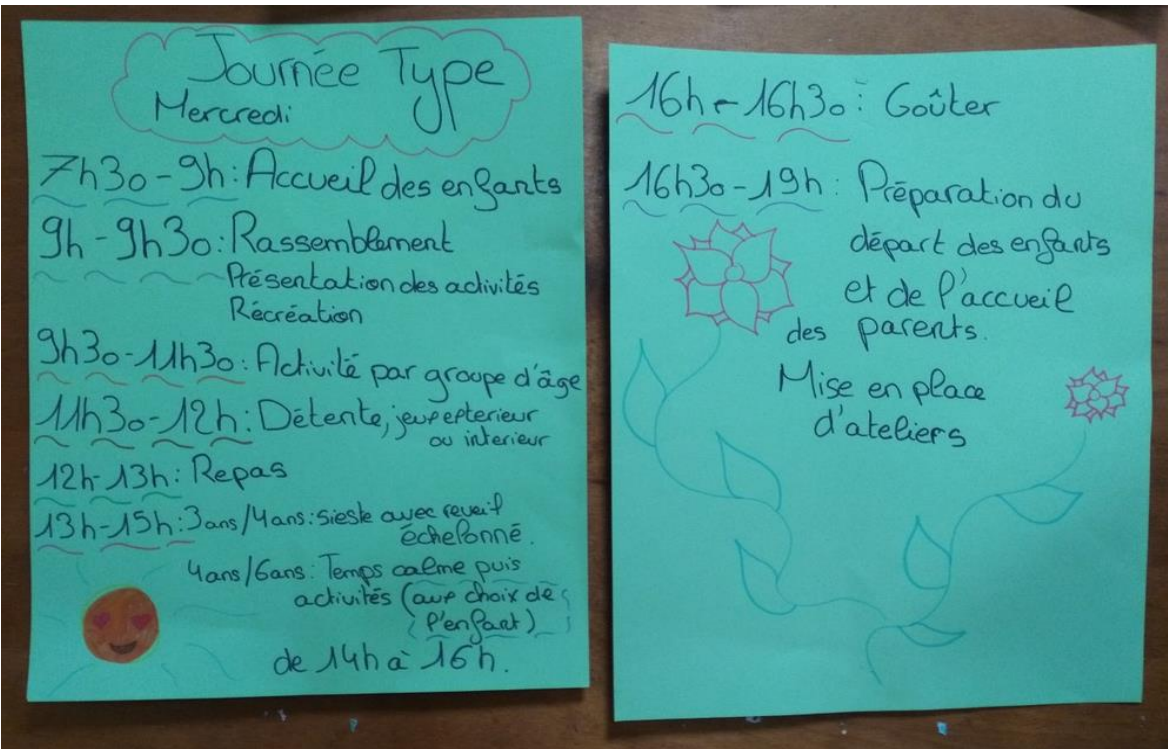 Journée Type
Mercredi
7h30-9h: Accueil des enfants
9h-9h30: Rassemblement
Présentation des activités
Récréation
9h30-11h30: Activité par groupe d'âge
11h30-12h: Détente, jeux exterieur
ou interieur
12h-13h: Repas
13h-15h: 3ans/4ans: sieste avec reveil
échelonné.
4ans/6ans: Temps calme puis
activités (aux choix de
l'enfant)
de 14h à 16h.
16h-16h30: Goûter
16h30-19h: Préparation du
départ des enfants
et de l'accueil
des parents.
Mise en place
d'ateliers